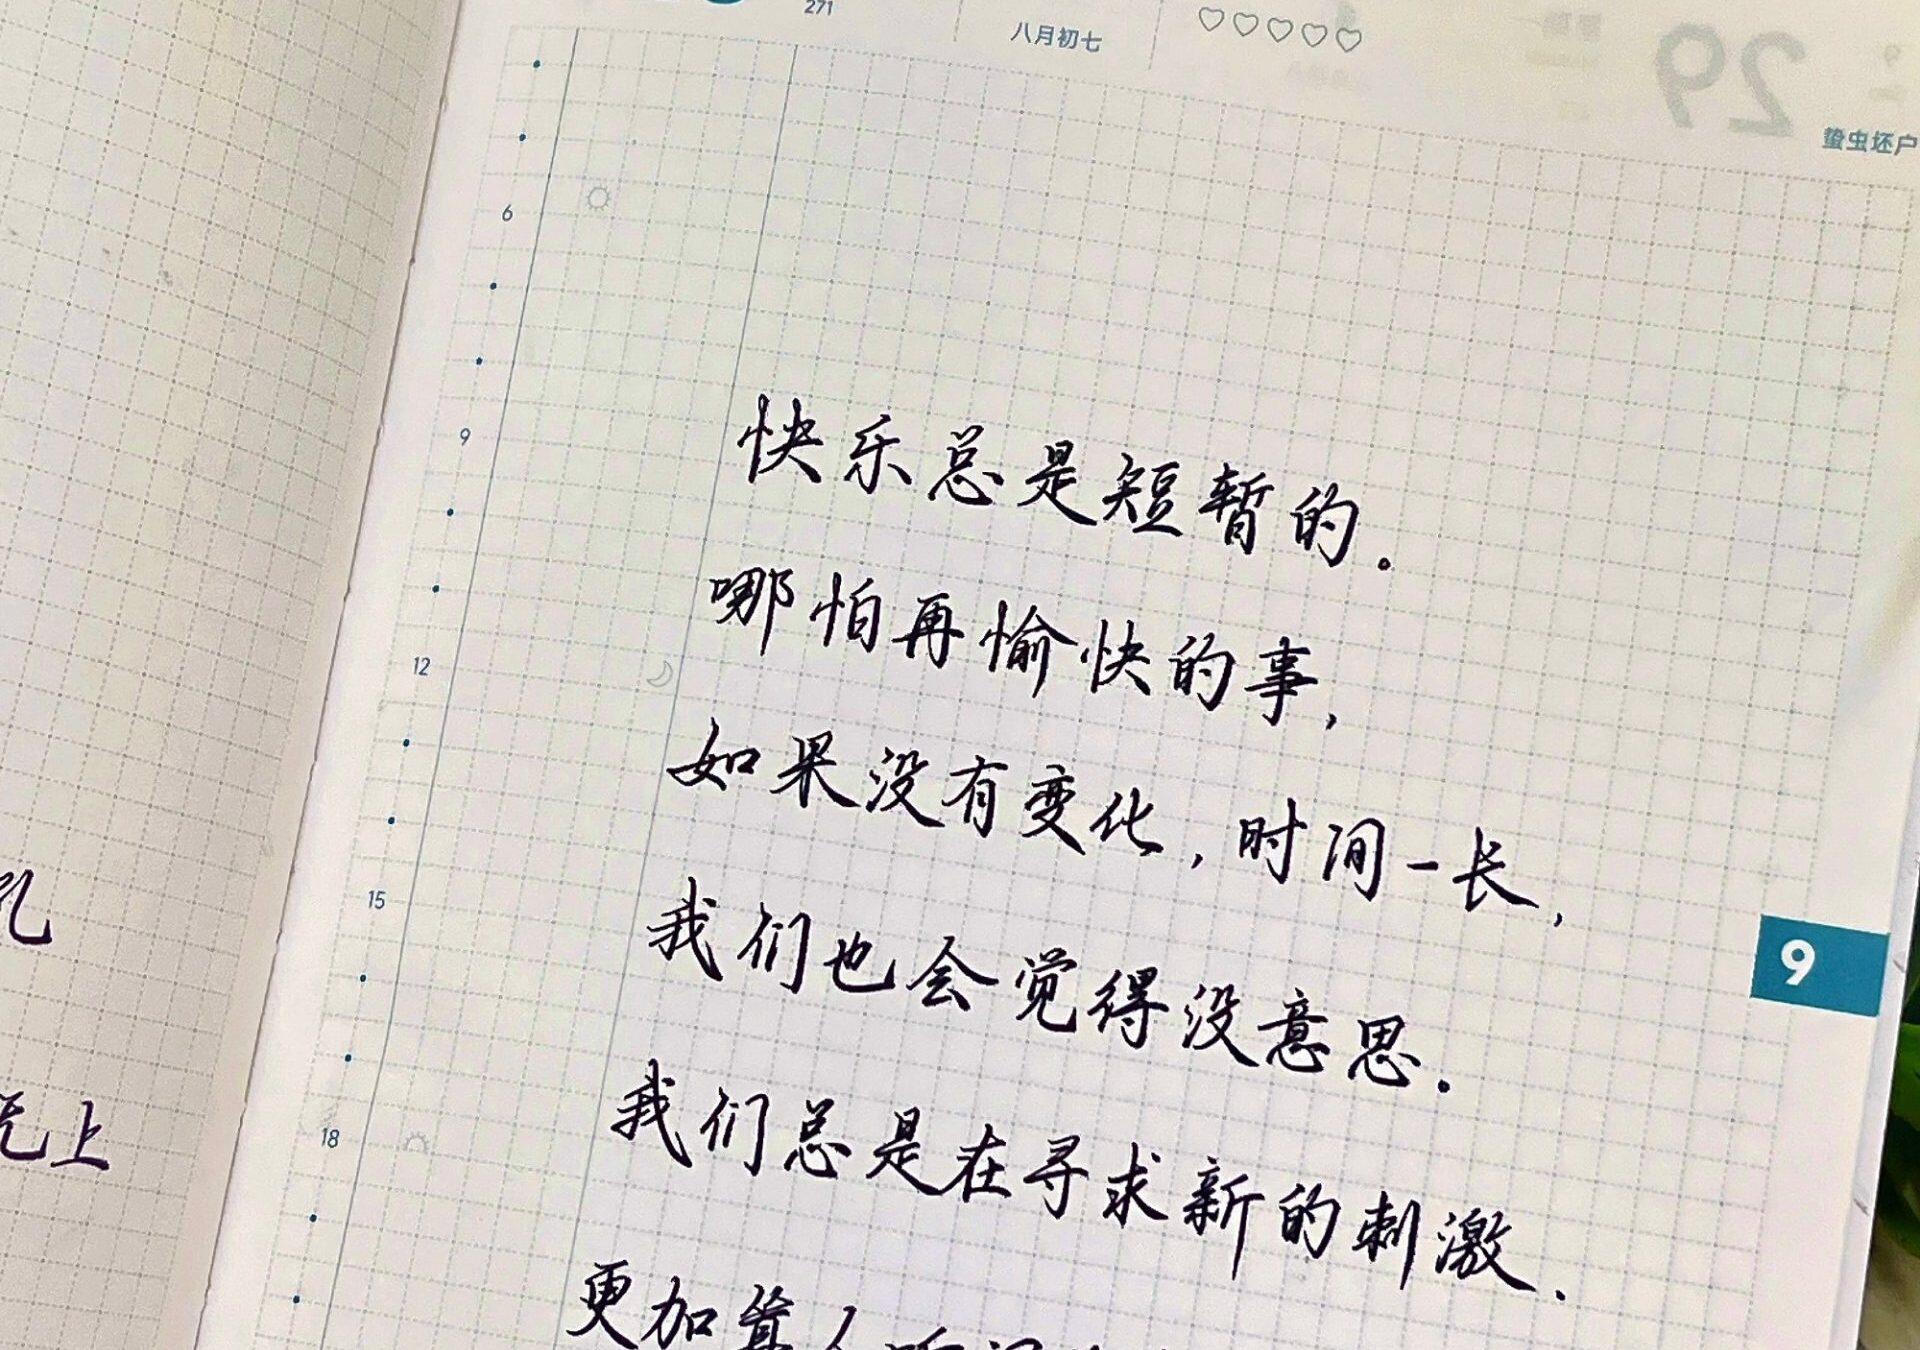 271
八月初七
29
蛰虫坯户
6
9
12
15
18
9
快乐总是短暂的。
哪怕再愉快的事,
如果没有变化,时间一长,
我们也会觉得没意思.
我们总是在寻求新的刺激.
更加
上